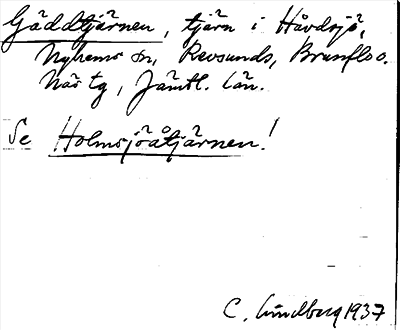 Gäddtjärnen, tjärn i Håvdsjö,
Nyhems sn, Revsunds, Brunflo o.
Näs tg, Jämtl. län.
Se Holmsjöåtjärnen!
C. Lindberg 1937